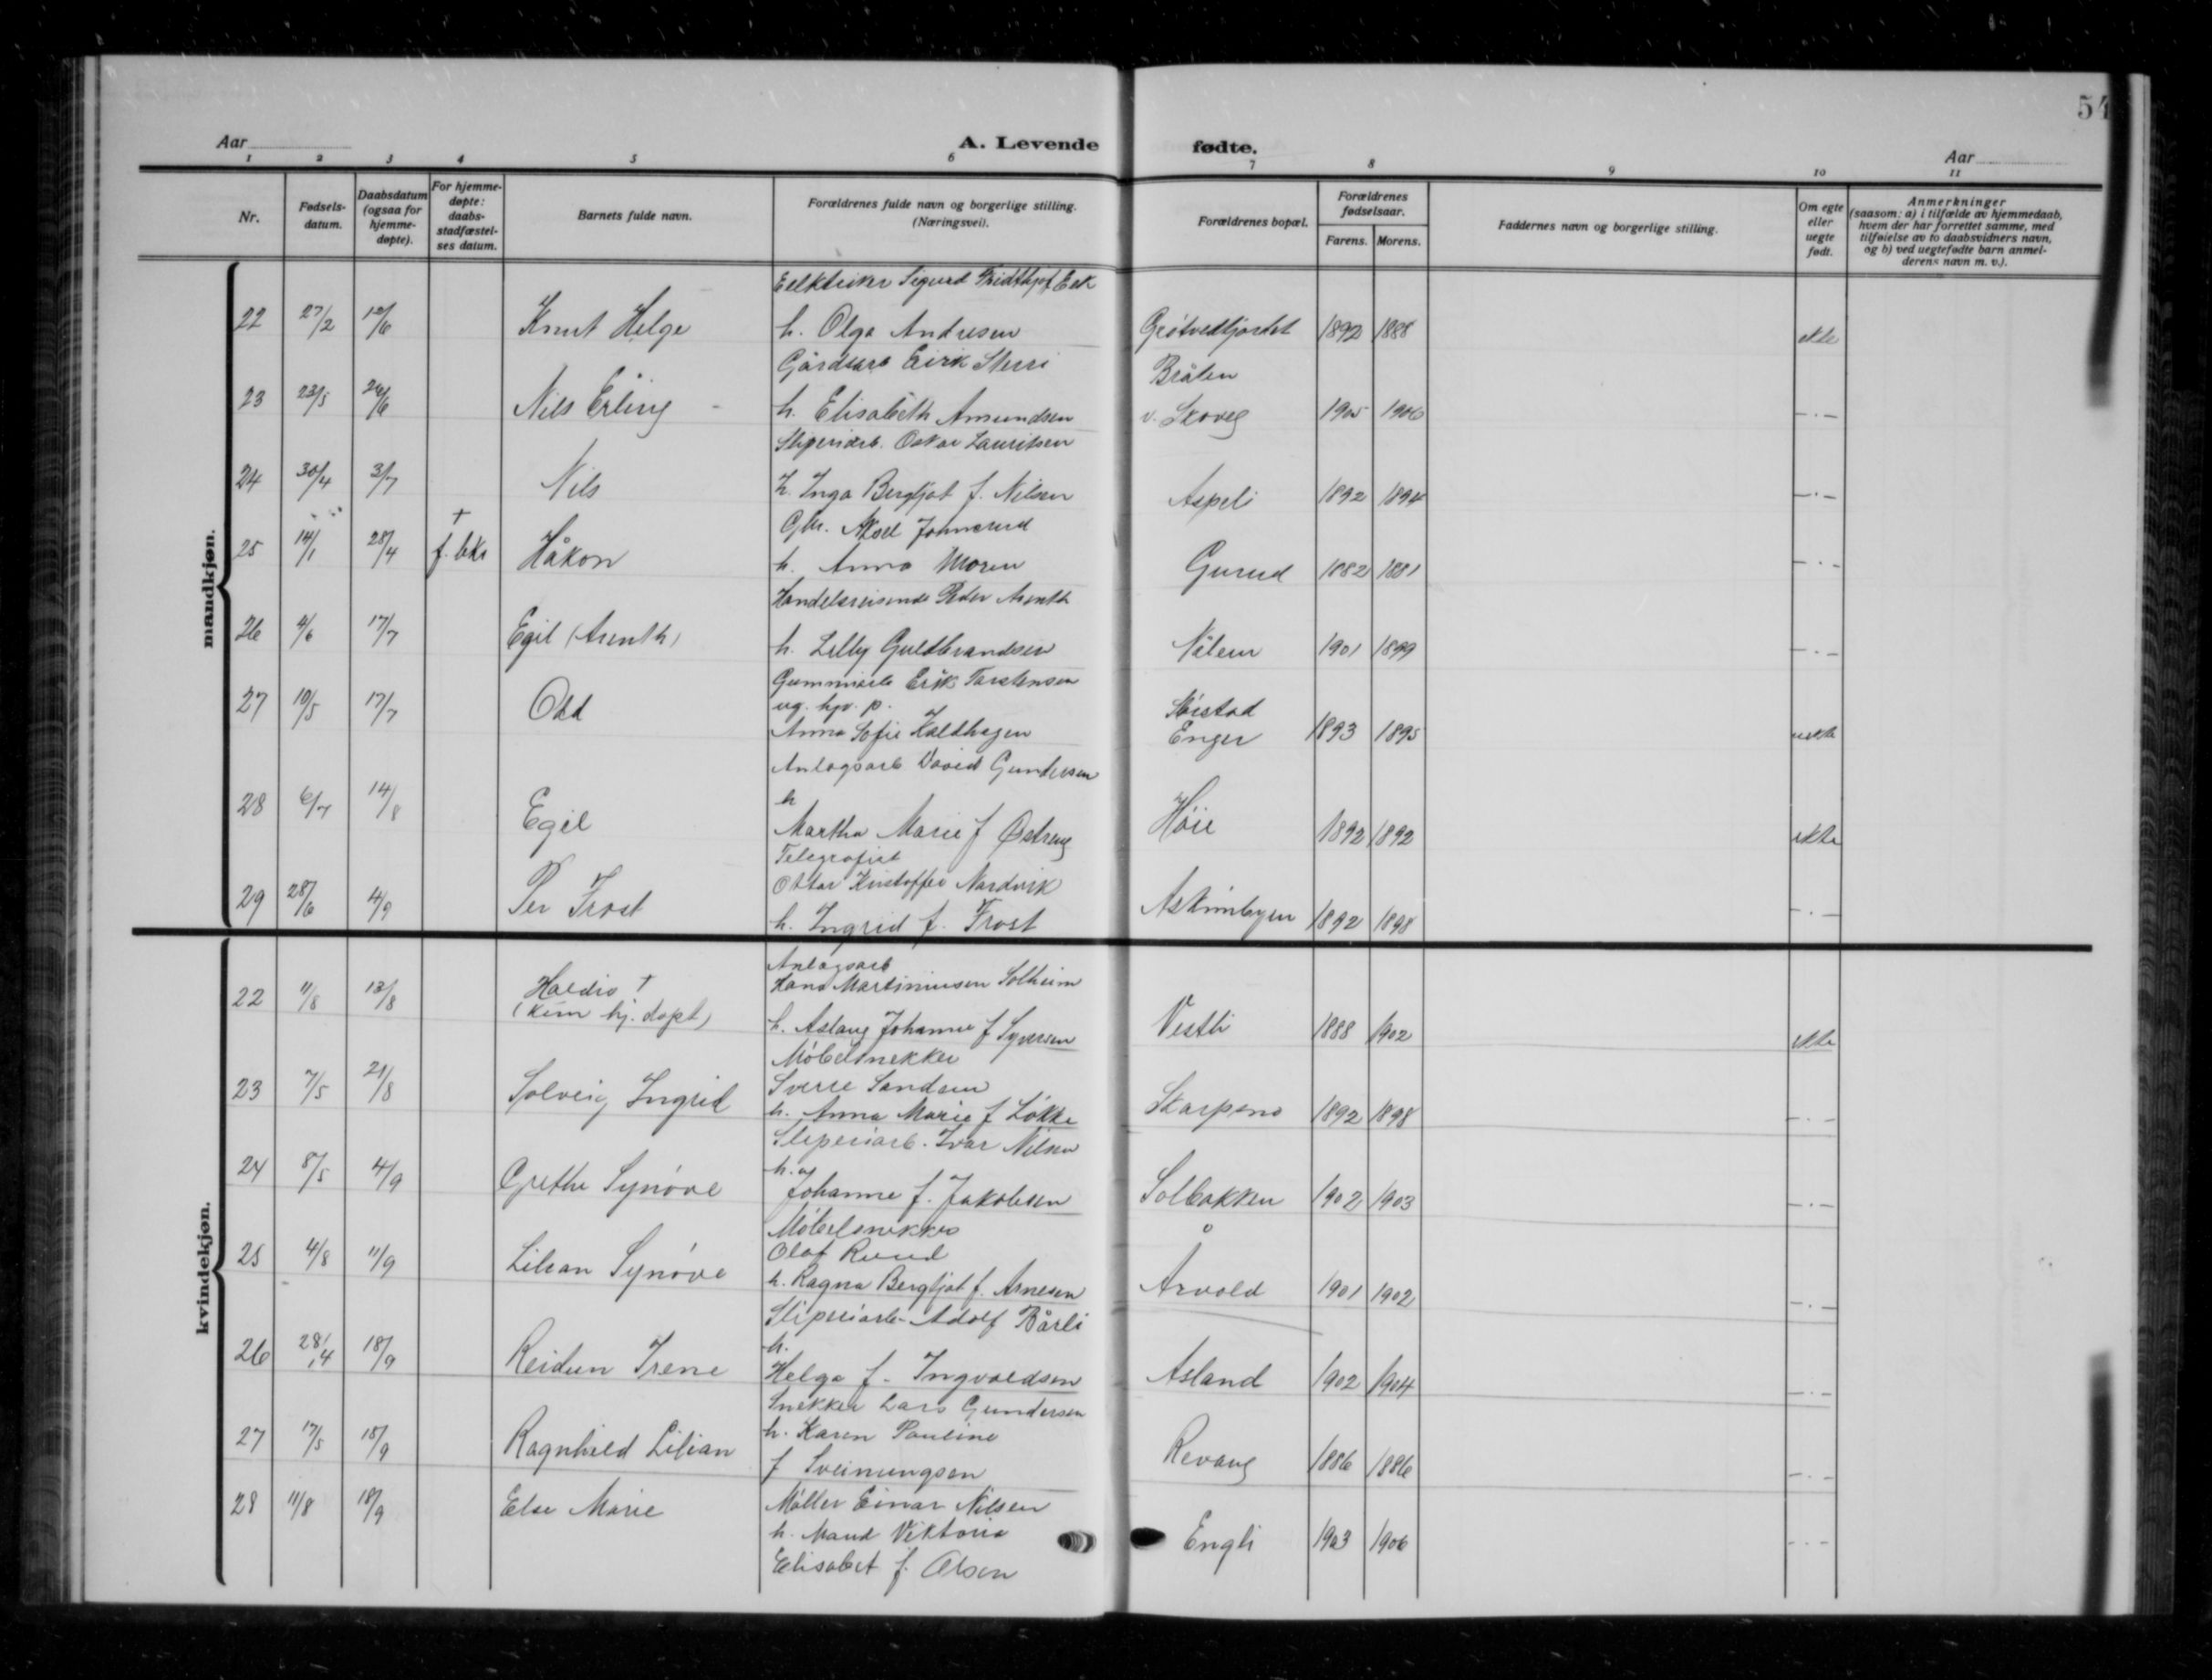 54
Aar
A. Levende fødte.
Aar
1 2 3 4 5 6 7 8 9 10 11
Nr.
Fødsels-
datum.
Daabsdatum
(ogsaa for
hjemme-
døpte).
For hjemme-
døpte:
daabs-
stadfæstel-
ses datum.
Barnets fulde navn.
Forældrenes fulde navn og borgerlige stilling.
(Næringsvei).
Forældrenes bopæl.
Forældrenes
fødselsaar.
Farens. Morens.
Faddernes navn og borgerlige stilling.
Om egte
eller
uegte
født.
Anmerkninger
(saasom: a) i tilfælde av hjemmedaab,
hvem der har forrettet samme, med
tilføielse av to daabsvidners navn,
og b) ved uegtefødte barn anmel-
derens navn m. v.).
mandkjøn.
Sigurd Fridthjof Eek
22 27/2 12/6 Knut Helge h. Olga Andresen 1892 1888 ekte
Gårdsarb Eirik Sterri Bråten
23 23/5 26/6 Nils Erling h. Elisabeth Amundsen v. Skoveg 1905 1906 -.-
Sliperiarb. Oskar Lauritsen
24 30/4 3/7 Nils h. Inga Bergljot f. Nilsen Aspeli 1892 1894 -.-
Gbr. Aksel
25 14/1 28/4 † Håkon h. Anna Moren Gurud 1882 1881 -.-
Handelsreisende Peder Arenth
26 4/6 17/7 Egil (Arenth) h. Lilly Guldbrandsen 1901 1899 -.-
Gummiarb Erik Torstensen
27 10/5 17/7 Odd ug. hjv. p.
Anna Sofie Kaldhagen Enger 1893 1895 uekte
Anlagsarb David Gundersen
28 6/7 14/8 Egil h
Martha Marie f Østreng 1892 1892 ekte
Telegrafist
Ottar Kristoffer Nordvik
29 28/6 4/9 Per Frost h. Ingrid f. Frost Askimbyen 1892 1898 -.-
kvindekjøn.
Anlagsarb
Hans Martiniusen Solheim
22 11/8 13/8 Haldis †
(kun hj. døpt) h. Aslaug Johanne f Syversen Vestli 1888 1902 ekte
Møbelsnekker
Sverre Sandem
23 7/5 21/8 Solveig Ingrid h. Anna Marie f Løkke Skarpsno 1892 1898 -.-
Sliperiarb. Ivar Nilsen
24 8/5 4/9 Grethe Synøve h. og
Johanne f. Jakobsen Solbakken 1902 1903 -.-
Møbelsnekker
Olaf Ruud
25 4/8 11/9 Lilian Synøve h. Ragna Bergljot f. Arnesen Årvold 1901 1902 -.-
Sliperiarb. Adolf Bårli
26 28/4 18/9 Reidun Irene h.
Helga f. Ingvaldsen Asland 1902 1904 -.-
Snekker Lars Gundersen
27 17/5 18/9 Ragnhild Lilian h. Karen Pauline
f Sveinungsen Revaug 1886 1886 -.-
28 11/8 18/9 Else Marie Møller Einar Nilsen
h. Maud Viktoria
Elisabet f. Olsen Engli 1903 1906 -.-